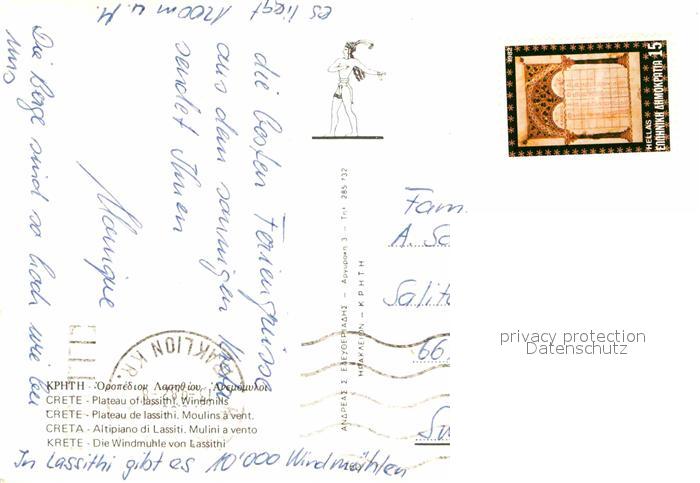 die besten Feriengrüsse
aus dem sonnigen Kreta
sendet Ihnen
Monique
Die Berge sind so hoch wie bei
uns
es liegt 1200 m ü. M.
In Lassithi gibt es 10'000 Windmühlen
ΚΡΗΤΗ - Ὀροπέδιον Λασηθίου. Ἀνεμόμυλοι
CRETE - Plateau of lassithi. Windmills
CRETE - Plateau de lassithi. Moulins à vent.
CRETA - Altipiano di Lassiti. Mulini a vento
KRETE - Die Windmuhle von Lassithi
ΑΝΔΡΕΑΣ Σ. ΕΛΕΥΘΕΡΙΑΔΗΣ - Αργυράκη 3 - Τηλ. 285 732
ΗΡΑΚΛΕΙΟΝ - ΚΡΗΤΗ
HELLAS
ΕΛΛΗΝΙΚΗ ΔΗΜΟΚΡΑΤΙΑ 15
1982
Fam.
A. Sc
Salit
66
privacy protection
Datenschutz